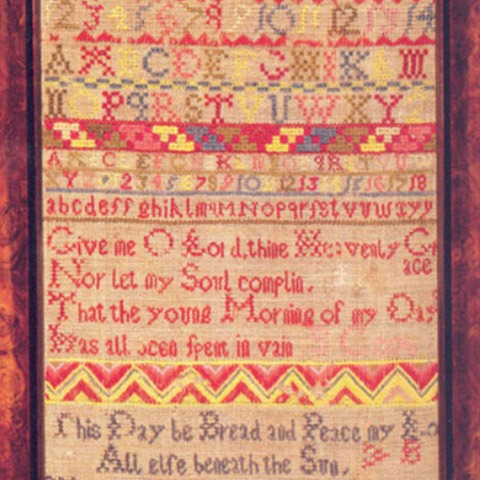 2 3 4 5 6 7 8 9 10 11 12 14
A C D E F G H I K L M
O P Q R S T U V W X Y
A B C E F G H K M O P Q R S T V U
X Y 2 3 4 5 6 7 8 9 10 12 13 15 16 17 18
abcdeff ghiklmn M N O pqrſst v u w x y y
Give me O Lord, thine Heavenly Gr
ace
Nor let my Soul complin,
That the young Morning of my Day
Has all been ſpent in vain
This Day be Bread and Peace my Lo
All elſe beneath the Sun,